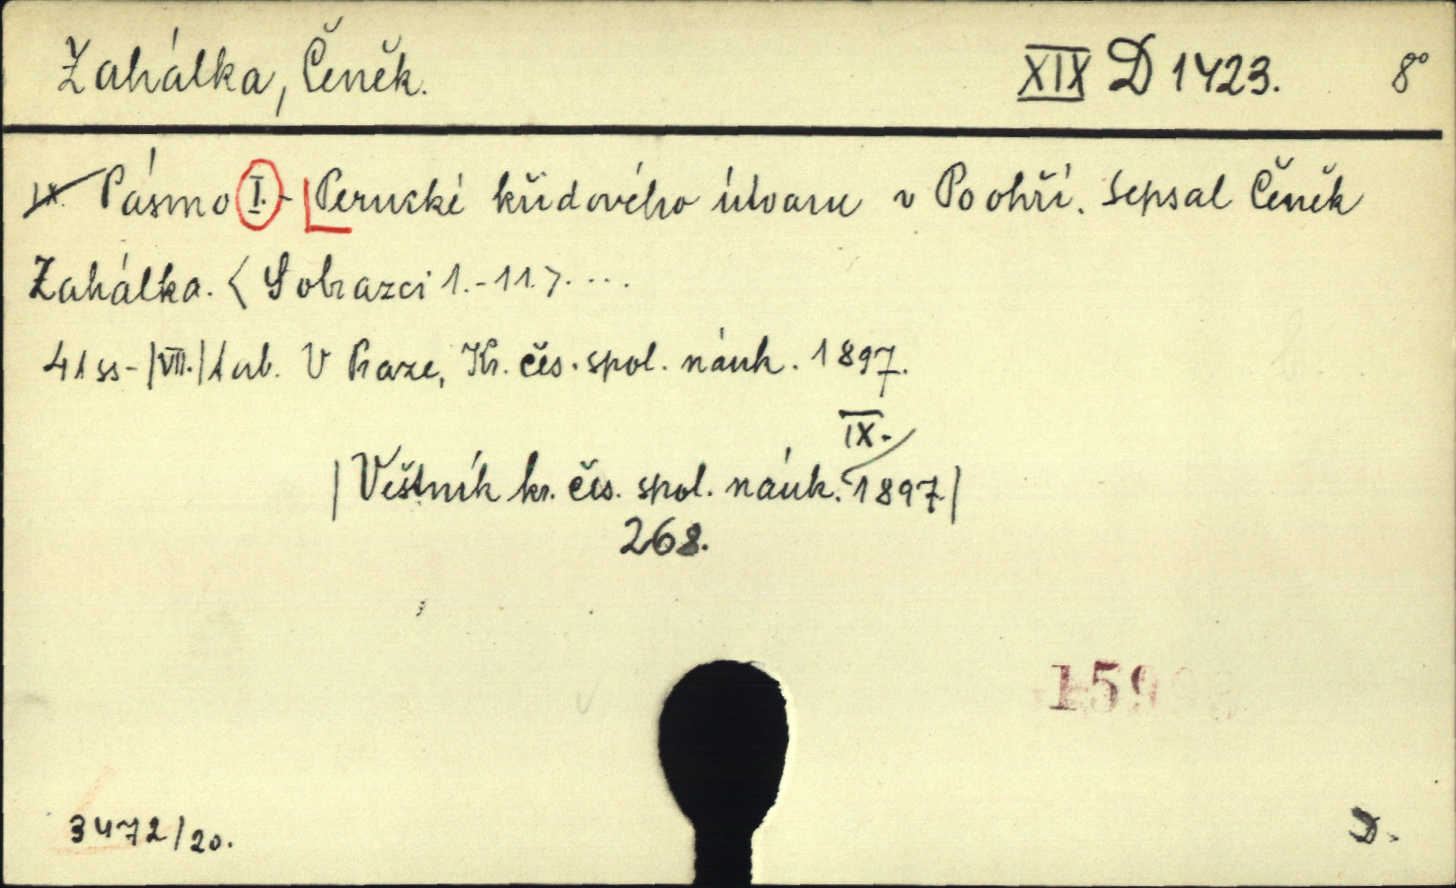 Zahálka, Čeněk. XIX D 1423. 8°
IX. Pásmo I. - Perucké křídového útvaru v Poohří. Sepsal Čeněk
Zahálka. < S obrazci 1.-11.>. ...
41 ss-|VII.|tab. V Praze, Kr. čes. spol. náuk. 1897.
IX.
|Věstník kr. čes. spol. náuk. 1897|
268.
159
3472/20.
D.